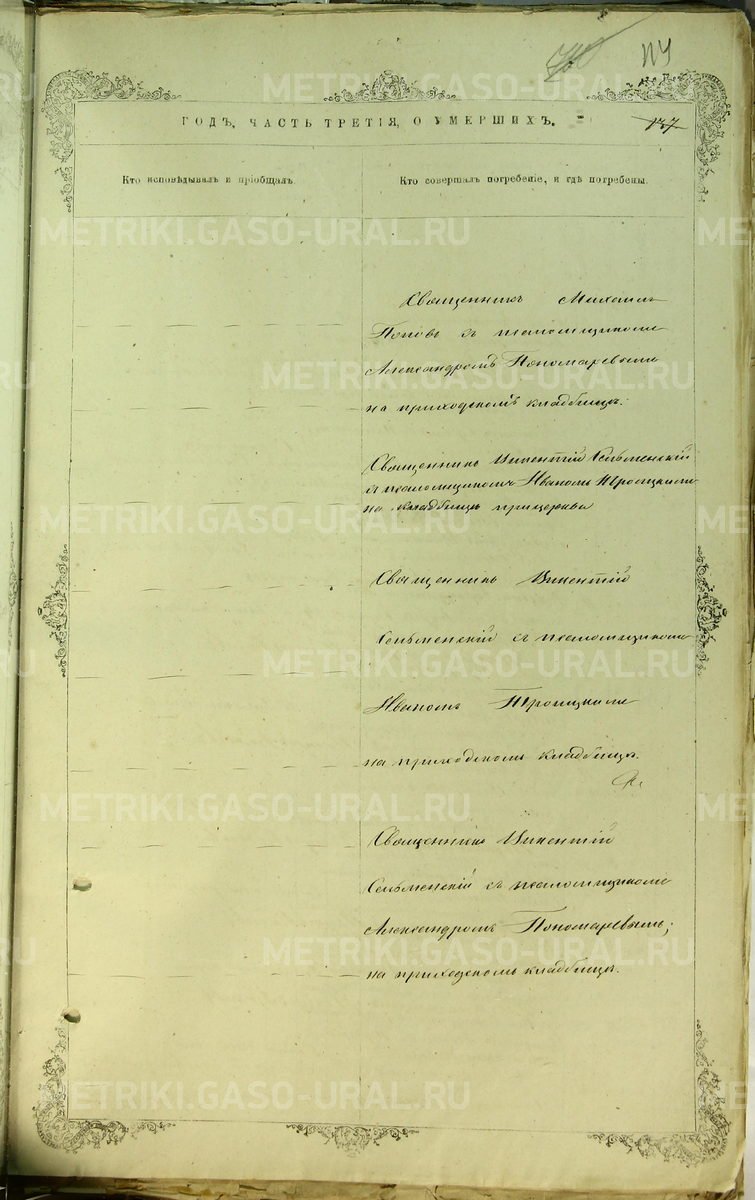 114
137
ГОДЪ, ЧАСТЬ ТРЕТІЯ, О УМЕРШИХЪ.
Кто исповѣдывалъ и пріобщалъ.
Кто совершалъ погребеніе, и гдѣ погребены.
Священникъ Михаилъ
Поповъ съ псаломщикомъ
Александромъ Пономаревымъ
на приходскомъ кладбищѣ.
Священникъ Викентій Сельменскій
и псаломщикомъ Иваномъ Троицкимъ
на кладбищѣ при церкви
Священникъ Викентій
Сельменскій съ псаломщикомъ
Иваномъ Троицкимъ
на приходскомъ кладбищѣ.
Священникъ Викентій
Сельменскій съ псаломщикомъ
Александромъ Пономаревымъ,
на приходскомъ кладбищѣ.
METRIKI.GASO-URAL.RU